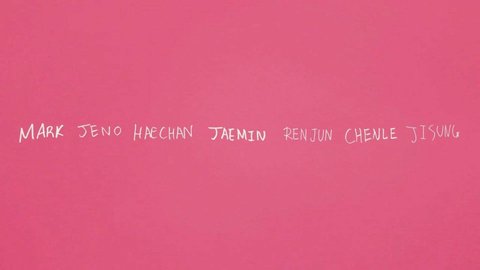 MARK JENO HAECHAN JAEMIN RENJUN CHENLE JISUNG